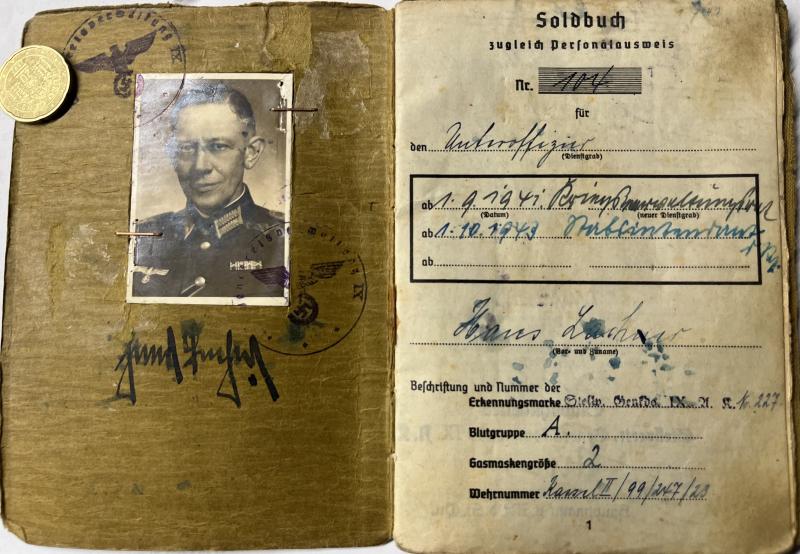 Soldbuch
zugleich Personalausweis
Nr. 104
für
den Unteroffizier
(Dienstgrad)
ab 1.9.1941 Kriegsverwaltungsrat
(Datum) (neuer Dienstgrad)
ab 1.10.1943 Stabsintendant
ab
Hans
(Vor- und Zuname)
Beschriftung und Nummer der
Erkennungsmarke IX. A. K. N. 227
Blutgruppe A.
Gasmaskengröße 2
Wehrnummer Kassel II/99/247/23
1